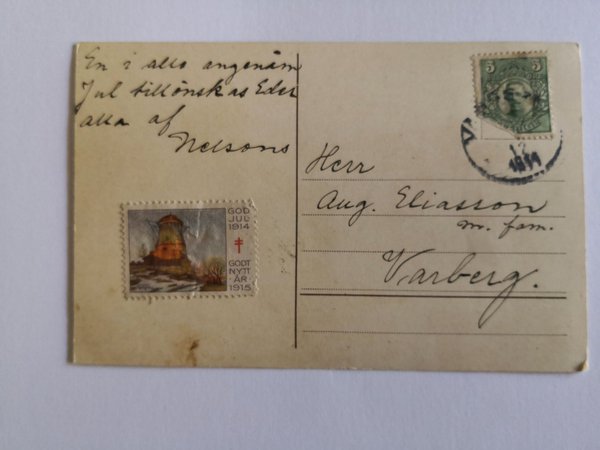 En i allo angenäm
Jul tillönskas Eder
alla af
Nelsons
GOD
JUL
1914
GODT
NYTT
ÅR
1915
5 5
12
1914
Herr
Aug. Eliasson
m. fam.
Varberg.